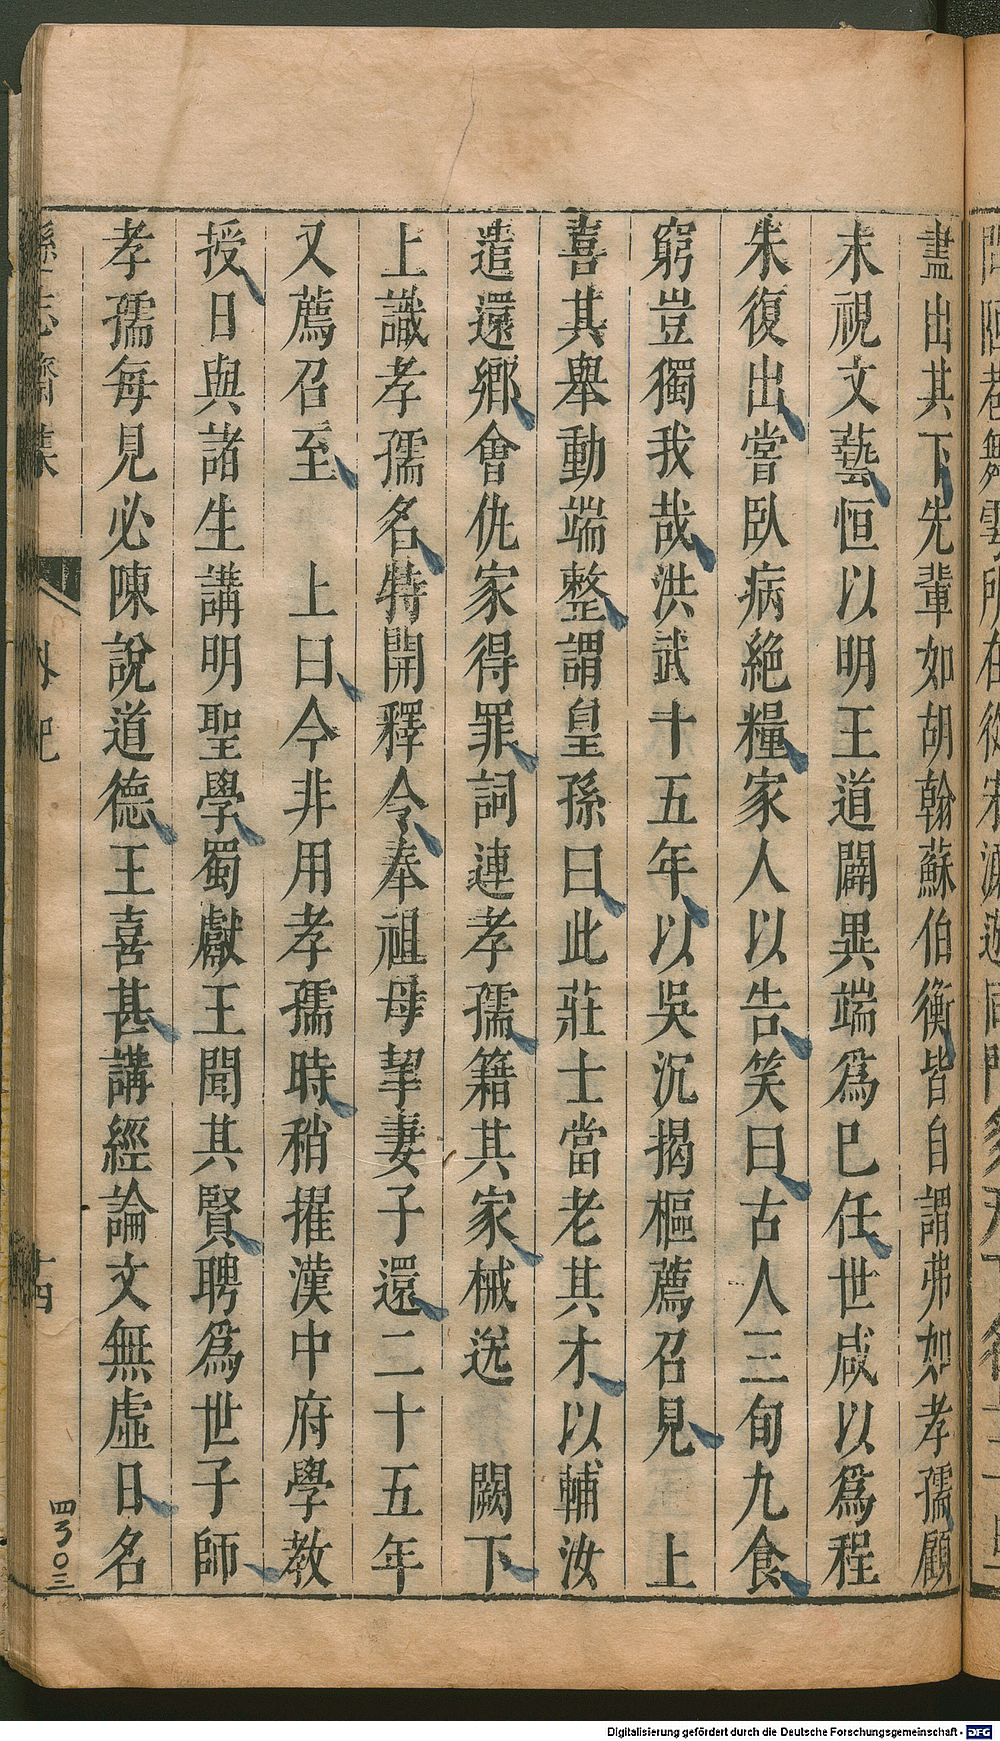 盡出其下先輩如胡翰蘇伯衡皆自謂弗如孝孺顧
末視文藝恒以明王道闢異端爲巳任世咸以爲程
朱復出嘗臥病絶糧家人以告笑曰古人三旬九食
窮豈獨我哉洪武十五年以吳沉揭樞薦召見　上
喜其舉動端整謂皇孫曰此莊士當老其才以輔汝
遣還鄉會仇家得罪詞連孝孺籍其家械送　闕下
上識孝孺名特開釋令奉祖母挈妻子還二十五年
又薦召至　上曰今非用孝孺時稍擢漢中府學教
授日與諸生講明聖學蜀獻王聞其賢聘爲世子師
孝孺每見必陳說道德王喜甚講經論文無虛日名
遜志齋集　外紀　十四
四弓〇三
Digitalisierung gefördert durch die Deutsche Forschungsgemeinschaft - DFG